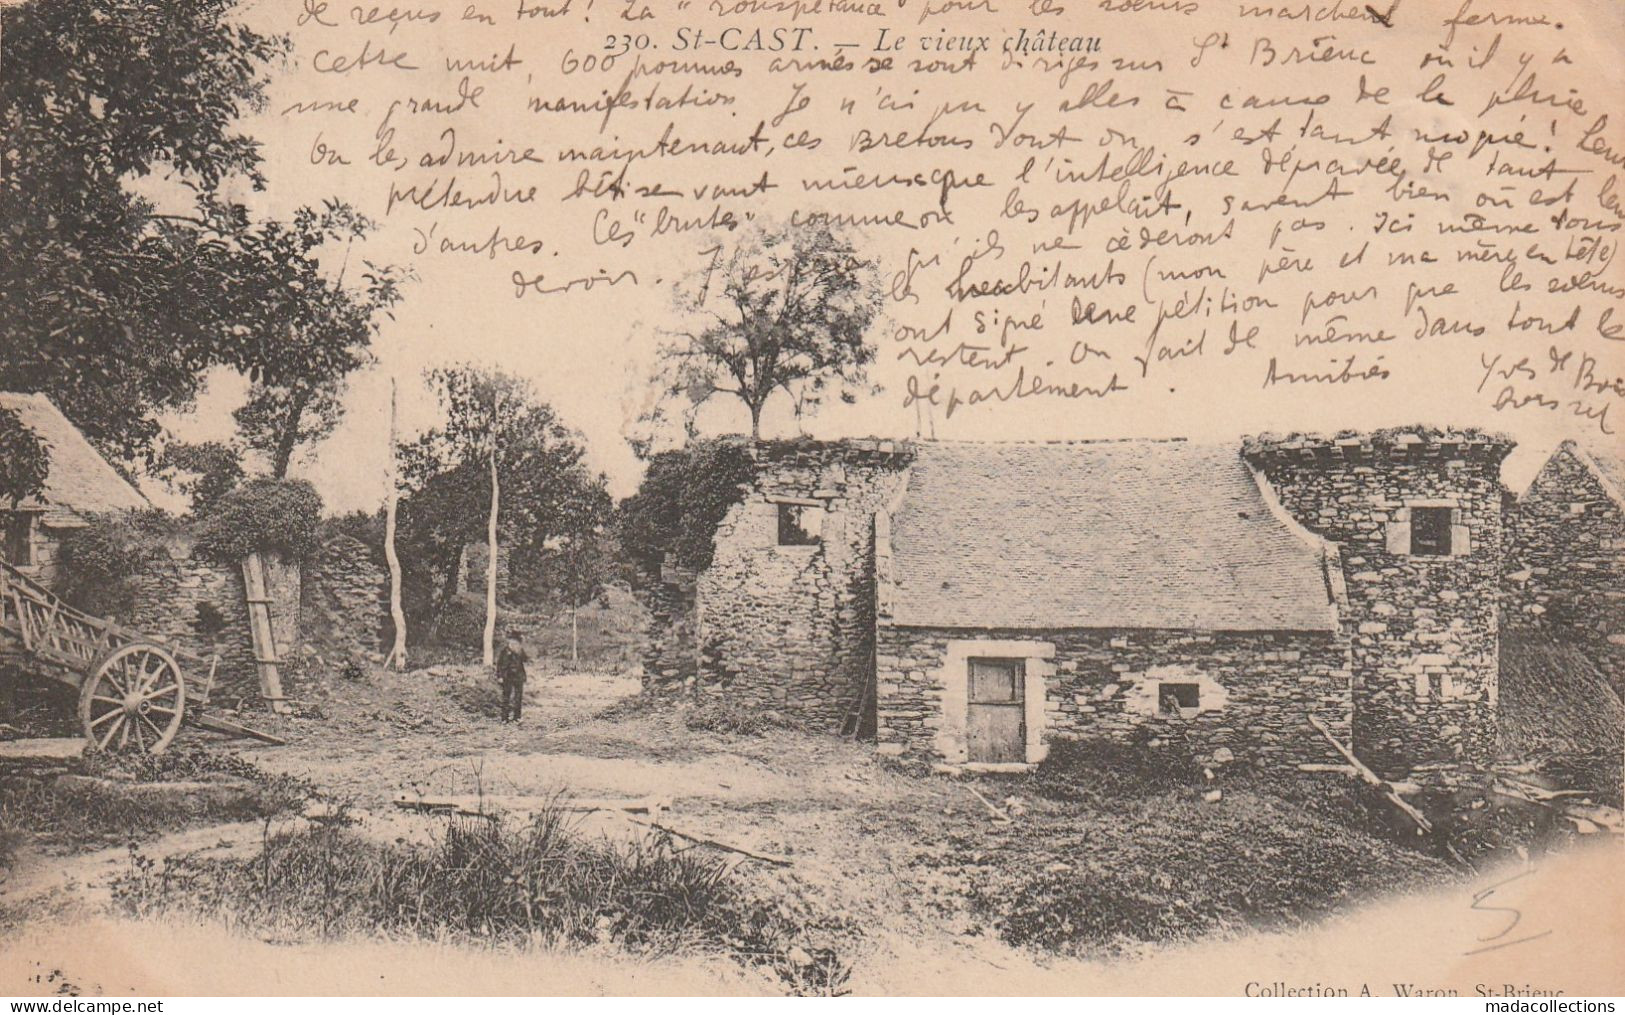 de reçus en tout ! La "rouspétance" pour les sœurs marchent ferme.
230. St-CAST. — Le vieux château
Cette nuit, 600 hommes armés se sont dirigés sur St Brieuc où il y a
une grande manifestation. Je n'ai pu y aller à cause de la pluie
On les admire maintenant, ces Bretons dont on s'est tant moqué ! Leur
prétendue bêtise vaut mieux que l'intelligence dépravée de tant
d'autres. Ces "brutes" comme on les appelait, savent bien où est leur
devoir. J'espère qu'ils ne cèderont pas. Ici même tous
les habitants (mon père et ma mère en tête)
ont signé une pétition pour que les sœurs
restent. On fait de même dans tout le
département. Amitiés Yves de
Collection A. Waron, St-Brieuc
5
madacollections.com
madacollections